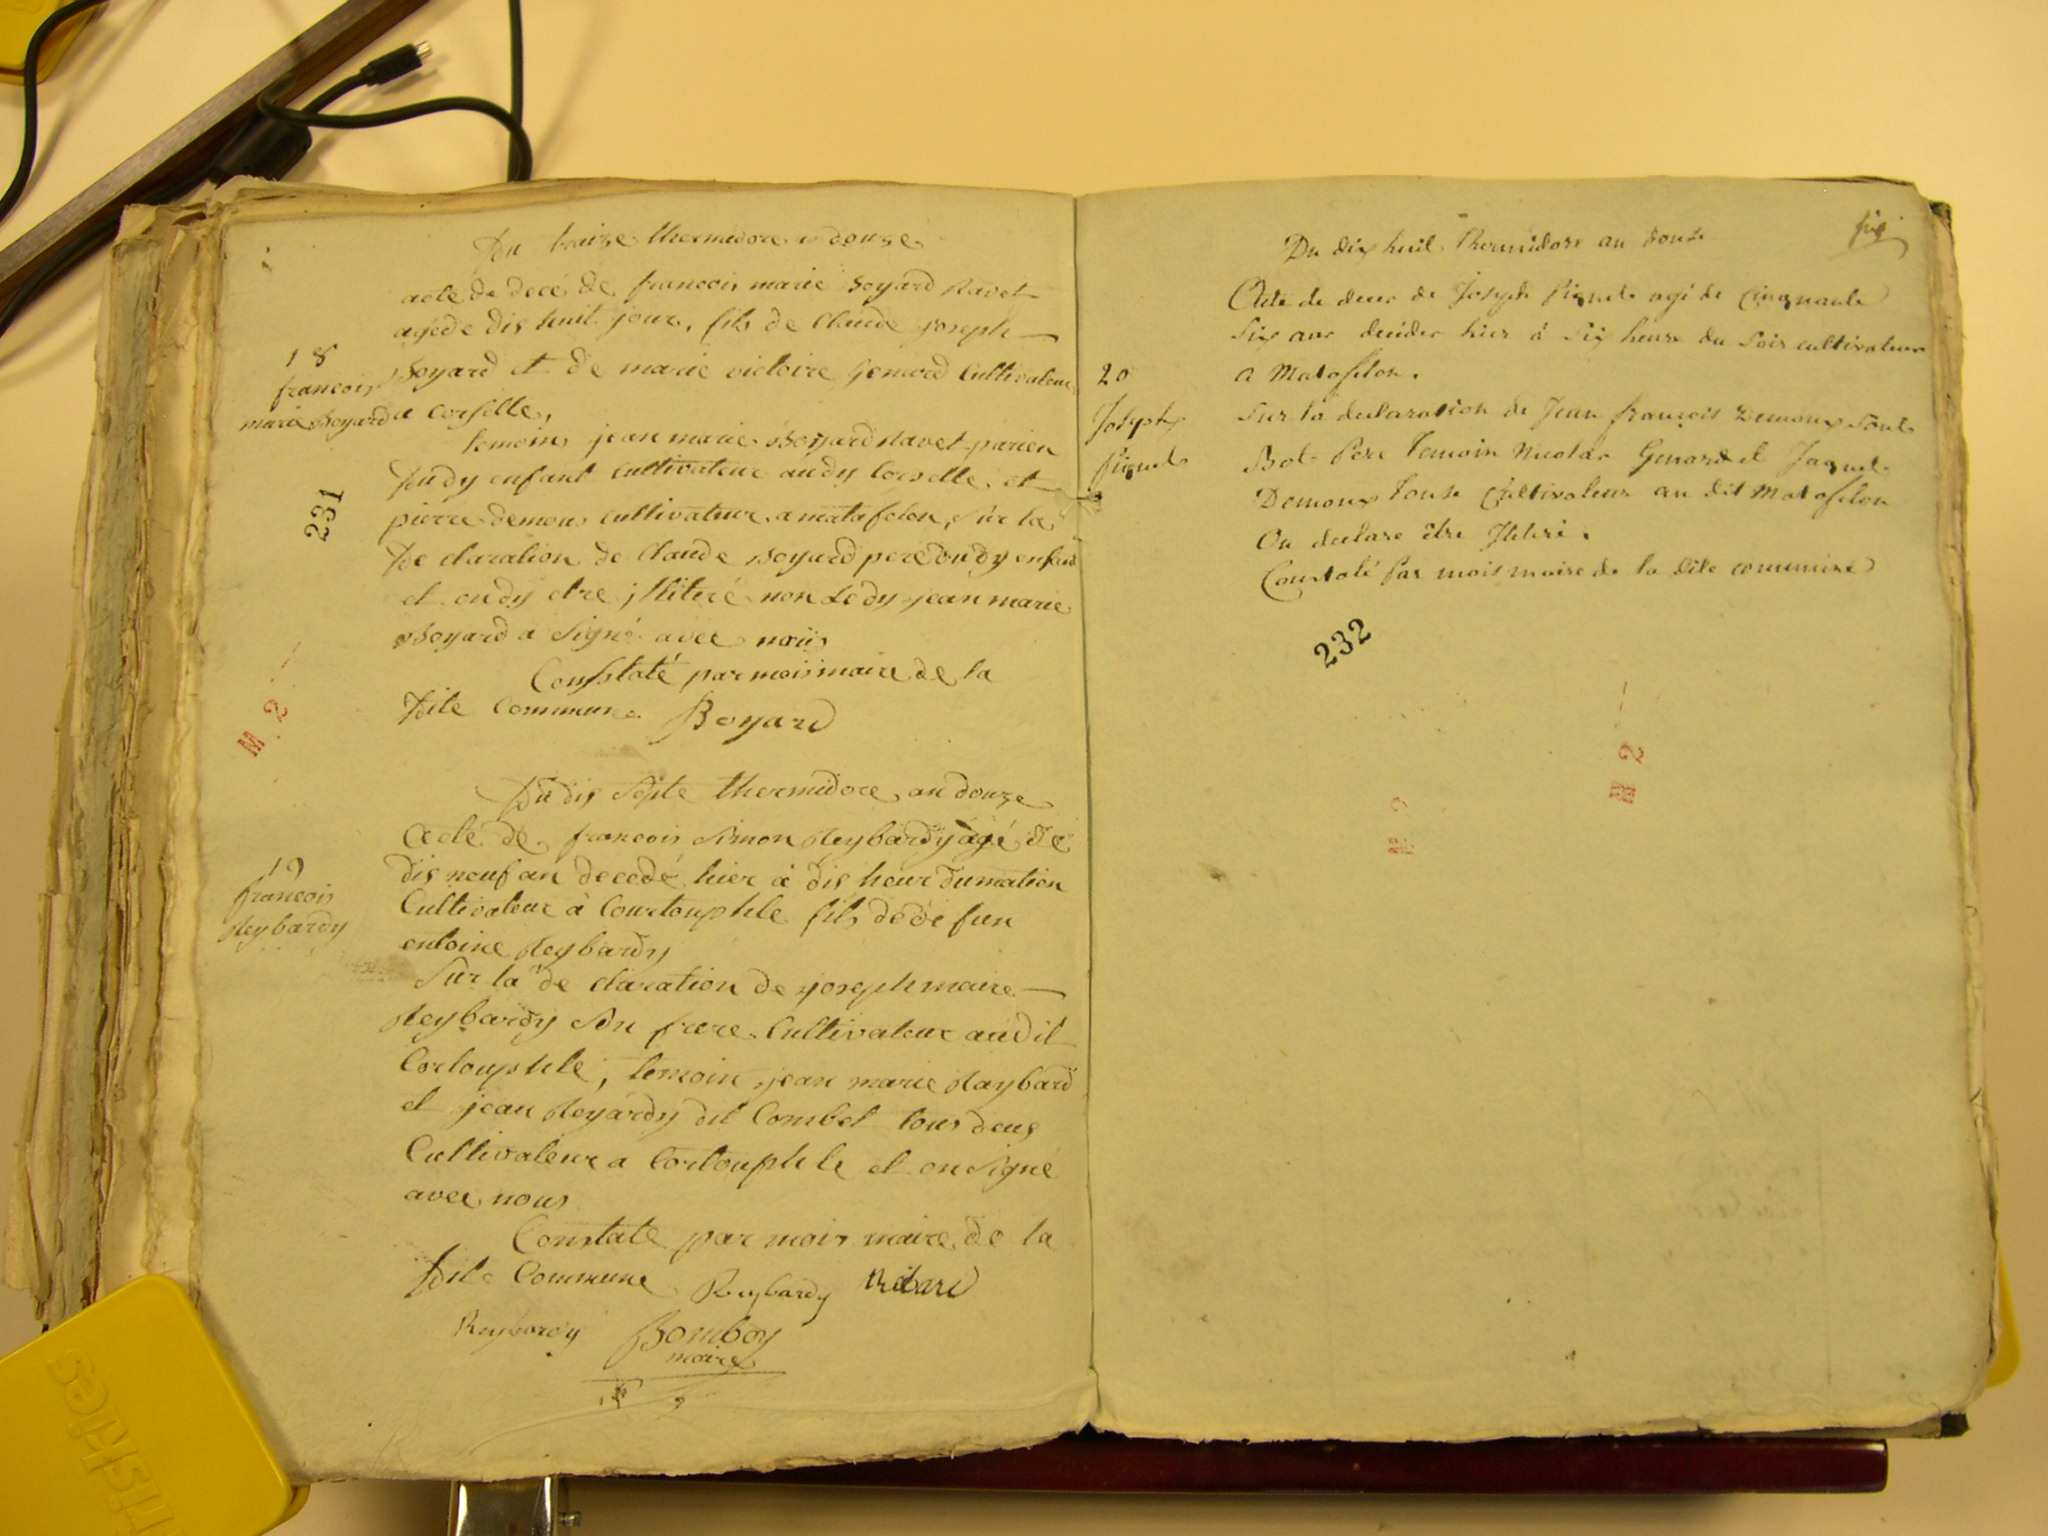 Du treize thermidore a douze
acte de decé de francois marie Boyard Ravet
agé de dis huit jour, fils de Claude joseph
18
francois
marie Boyard
Boyard et de marie victoire Genard Cultivateur
a Corselle,
temoins jean marie Boyard Ravet parien
Dudy enfant Cultivateur audy Corselle et
231
pierre demous cultivateur a matafelon, sur la
De claration de Claude Boyard pere dudy enfant
et ondy etre illiteré non Ledy jean marie
Boyard a Signé avec nous
Constaté par mois maire de la
Dite Commune Boyard
M. 2
Du dis Septe thermidore an douze
Acte de francois Simon Reybardy agé de
19
francois
Reybardy
dis neuf an decedé hier à dis heur du mation
Cultivateur à Courtouphle fils de de fun
entoine Reybardy
Sur la de claration de joseph maire
Reybardy Son frere Cultivateur au dit
Cortouphle, temoin jean marie Raybard
et jean Reyardy dit Combet tous deus
Cultivateur a Cortouphle et on Signé
avec nous
Constate par mois maire de la
Dite Commune Reybardy
Reybardy Bomboy
maire
Du dix huit Thermidore an douze
Acte de deces de Joseph Piquet agé de Cinquante
Six ans decider hier à Six heure du Soir cultivateur
20
Joseph
Piquet
a Matafelon.
Sur la declaration de Jean françois Demoux Sont
Bot Pere Temoin Nicolas Genard et Jaque
Demoux Tous Cultivateur au dit Matafelon
On declare être Iliteri.
Constaté par mois maire de la dite commune
232
M 2